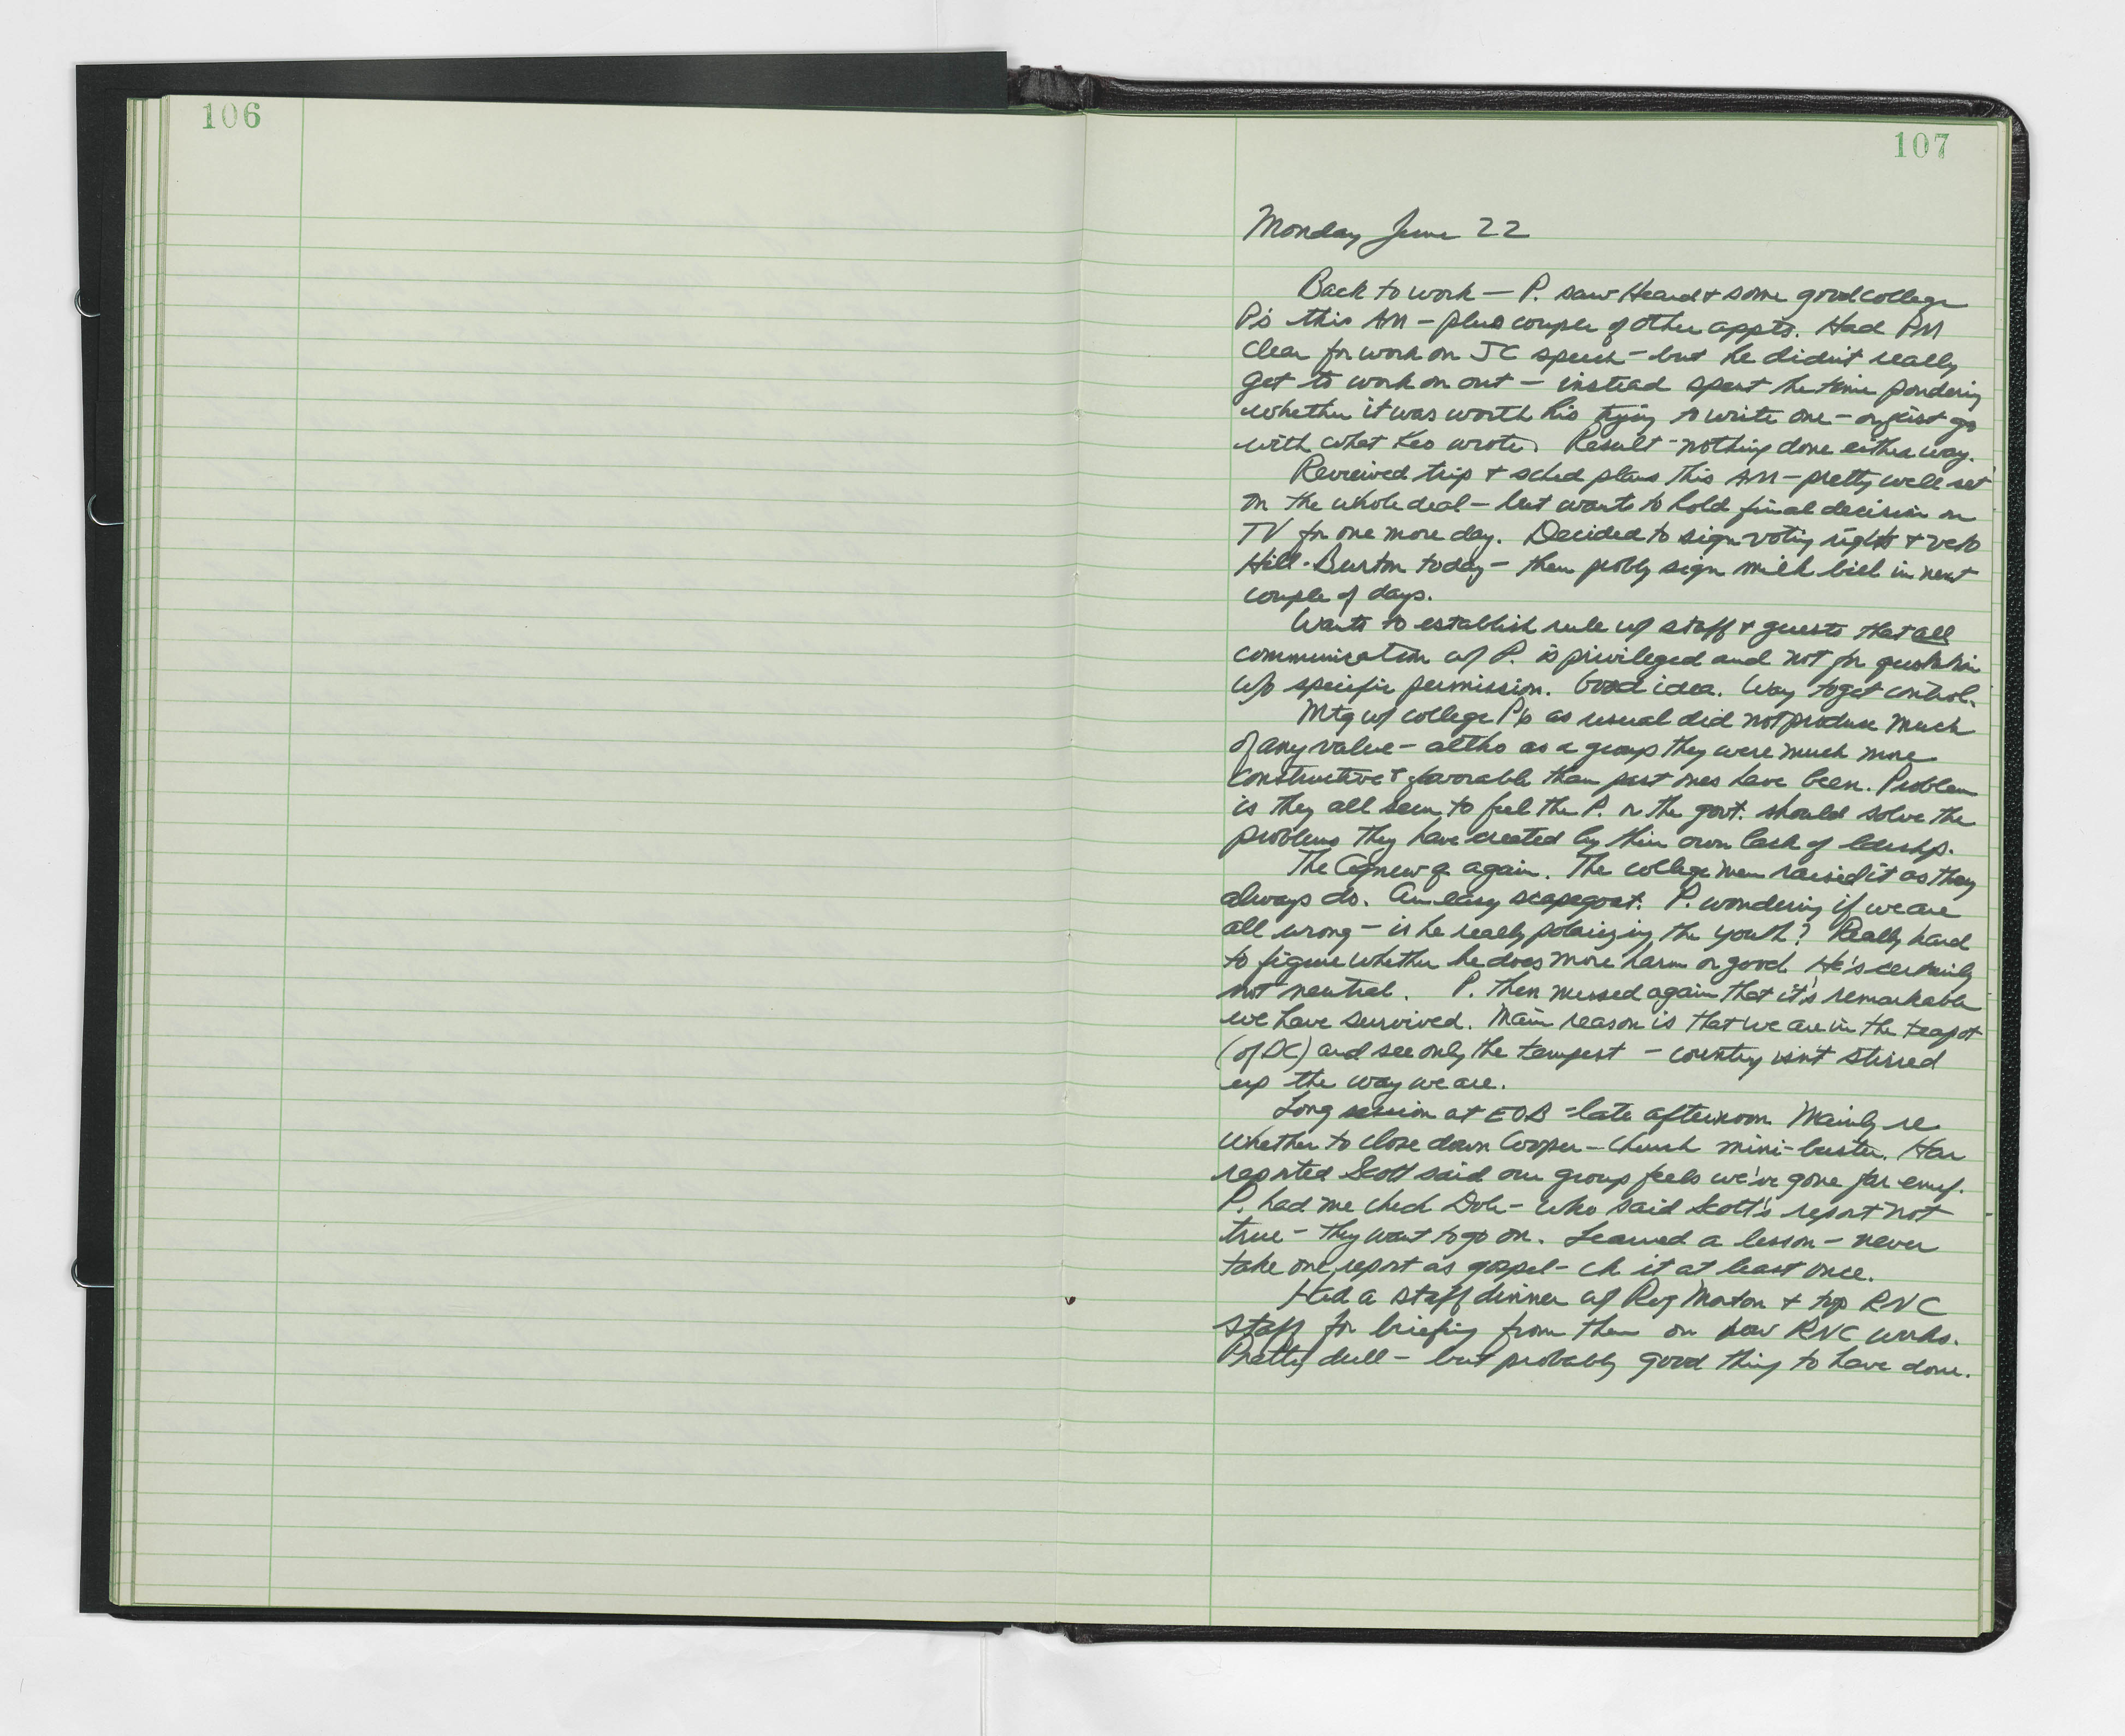 106
107
Monday June 22
Back to work — P. saw Heard & some good college
P's this AM — plus couple of other appts. Had PM
clear for work on JC speech — but he didn't really
get to work on out — instead spent the time pondering
whether it was worth his trying to write one — or just go
with what Keo wrote. Result - nothing done either way.
Reviewed trip & sched plans this AM — pretty well set
on the whole deal — but wants to hold final decision on
TV for one more day. Decided to sign voting rights & veto
Hill-Burton today — then probly sign milk bill in next
couple of days.
Wants to establish rule w/ staff & guests that all
communication w/ P. is privileged and not for
w/o specific permission. Good idea. Way to get control.
Mtg w/ college Ps as usual did not produce much
of any value — altho as a group they were much more
constructive & favorable than past ones have been. Problem
is they all seem to feel the P. or the govt. should solve the
problems they have created by their own lack of ldership.
The Agnew q again. The college men raised it as they
always do. An easy scapegoat. P. wondering if we are
all wrong — is he really polarizing the youth? Really hard
to figure whether he does more harm or good. He's certainly
not neutral. P. then mused again that it's remarkable
we have survived. Main reason is that we are in the teapot
(of DC) and see only the tempest — country isn't stirred
up the way we are.
Long session at EOB - late afternoon. Mainly re
whether to close down Cooper-Church mini-buster. Har
reported Scott said our group feels we've gone far enuf.
P. had me check Dole — who said Scott's report not
true — they want to go on. Learned a lesson — never
take one report as gospel — ch it at least once.
Had a staff dinner w/ Rog Morton & top RNC
staff for briefing from them on how RNC works.
Pretty dull — but probably good thing to have done.